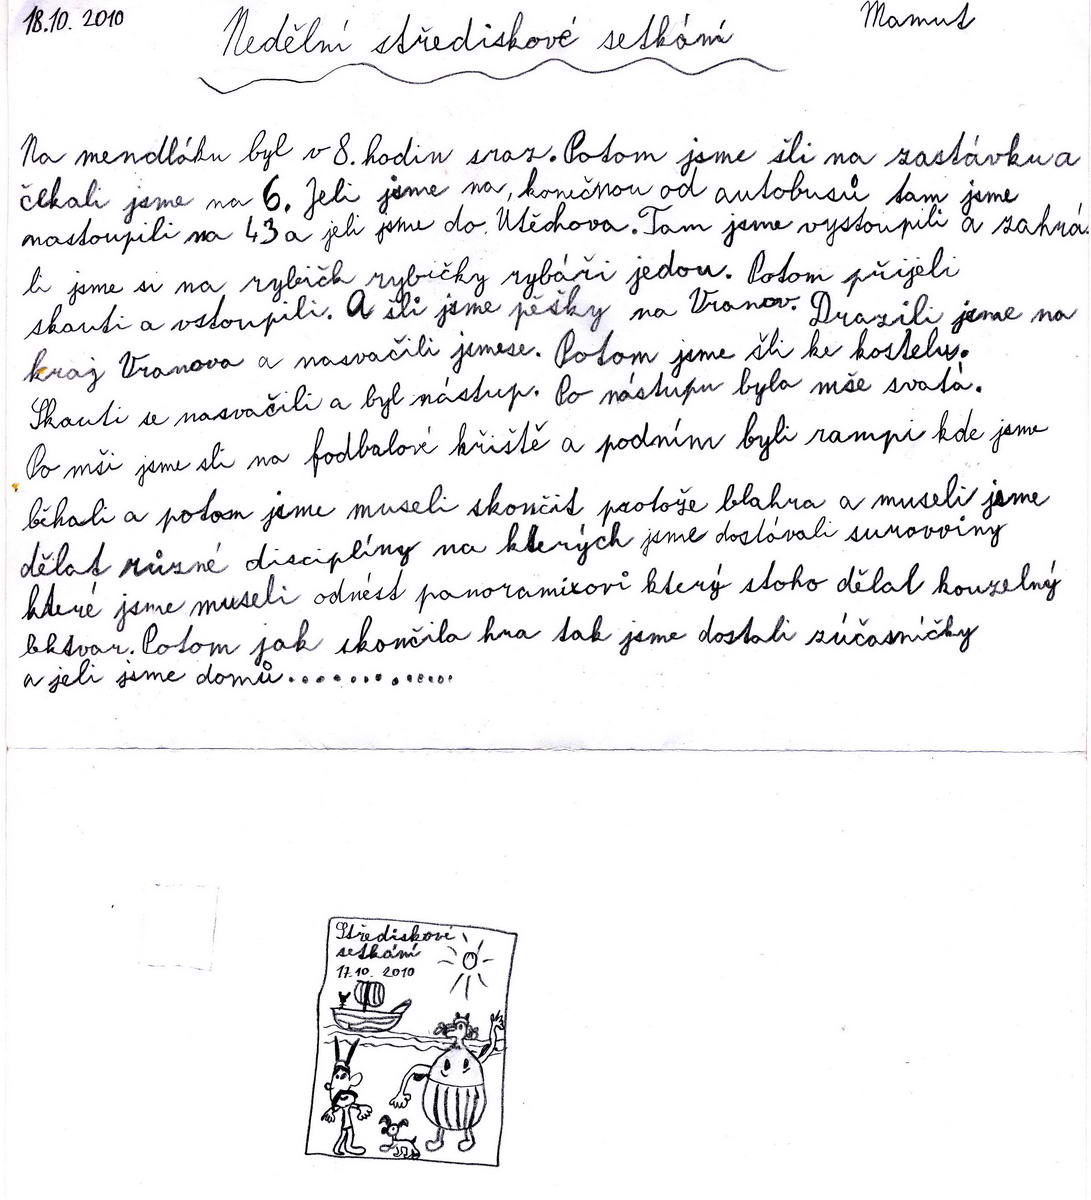 18.10. 2010
Mamut
Nedělní střediskové setkání
Na mendláku byl v 8. hodin sraz. Potom jsme šli na zastávku a
čekali jsme na 6. Jeli jsme na konečnou od autobusů tam jsme
nastoupili na 43 a jeli jsme do Utěchova. Tam jsme vystoupili a zahrá
li jsme si na rybičk rybičky rybáři jedou. Potom přijeli
skauti a vstoupili. A šli jsme pěšky na Vranov. Drazili jsme na
kraj Vranova a nasvačili jsmese. Potom jsme šli ke kostelu.
Skauti se nasvačili a byl nástup. Po nástupu byla mše svatá.
Po mši jsme sli na fodbalové křiště a podním byli rampi kde jsme
běhali a potom jsme museli skončit protože blahra a museli jsme
dělat různé disciplíny na kterých jsme dostávali surovviny
které jsme museli odnést panoramixovi který stoho dělal kouzelný
lektvar. Potom jak skončila hra tak jsme dostali zúčasničky
a jeli jsme domů.............
Střediskové
setkání
17.10. 2010